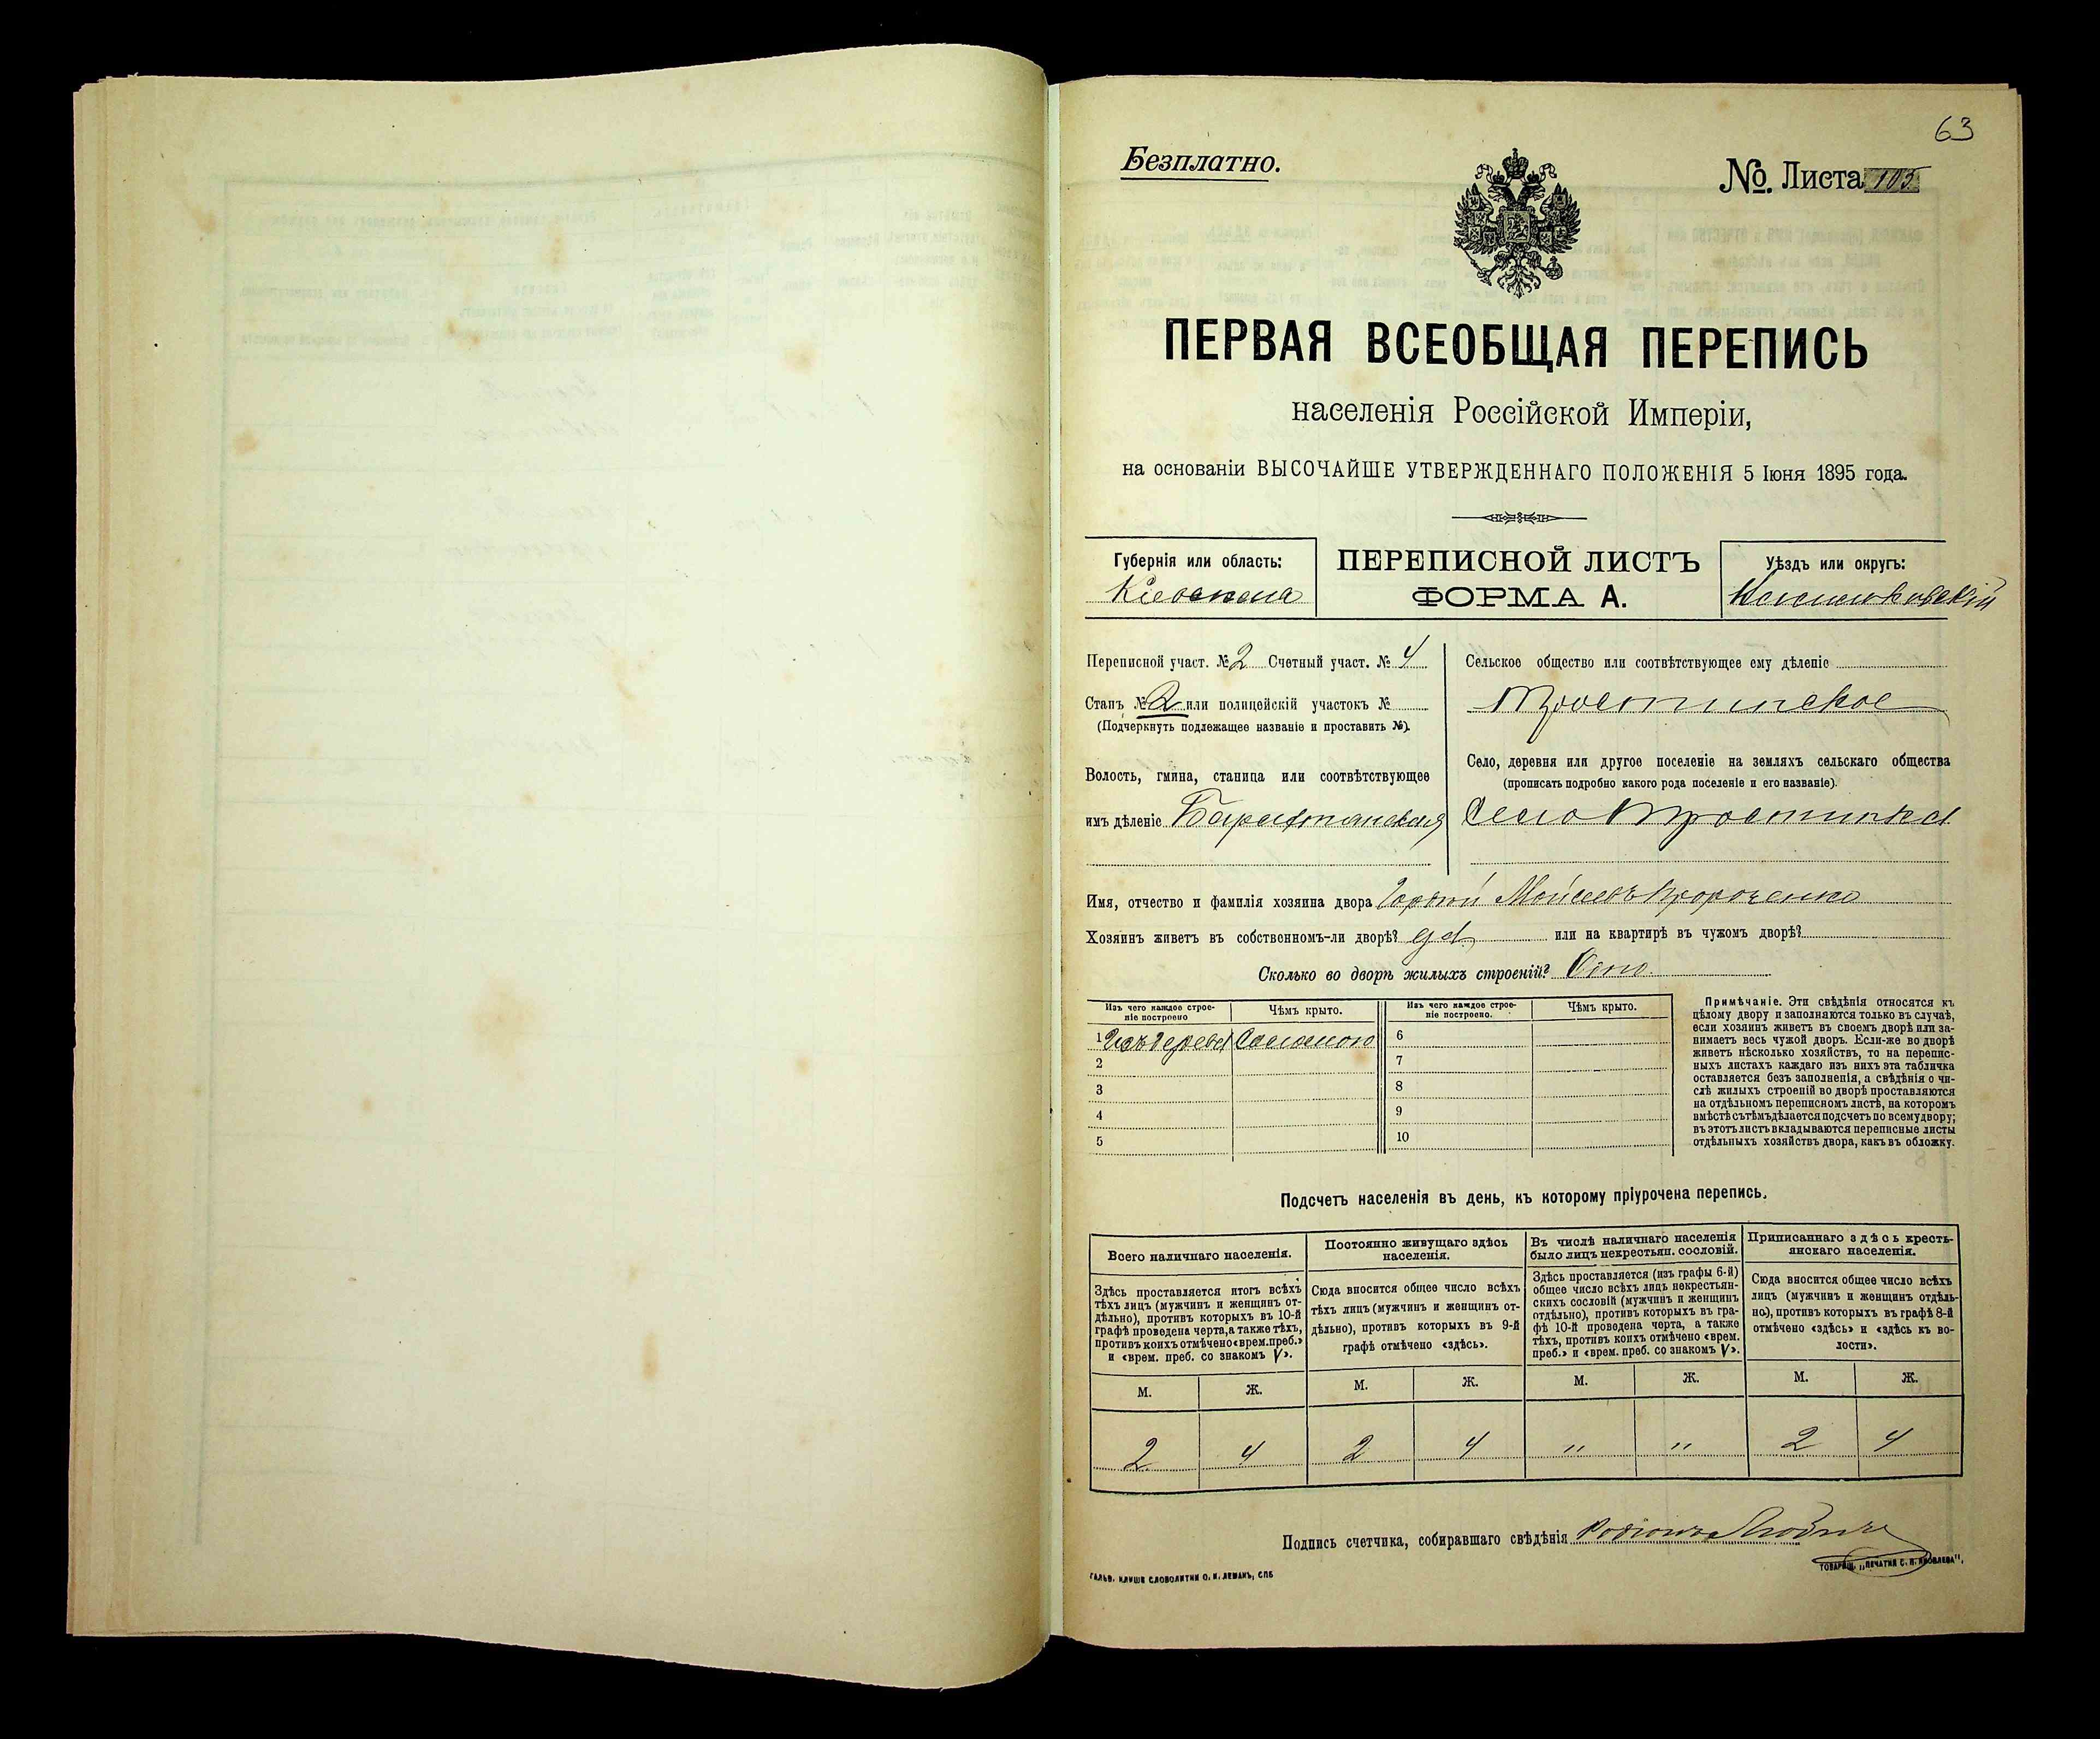 63
Безплатно.
№. Листа 103
ПЕРВАЯ ВСЕОБЩАЯ ПЕРЕПИСЬ
населенія Россійской Имперіи,
на основаніи ВЫСОЧАЙШЕ УТВЕРЖДЕННАГО ПОЛОЖЕНІЯ 5 Іюня 1895 года.
Губернія или область:
Кіевская
ПЕРЕПИСНОЙ ЛИСТЪ
ФОРМА А.
Уѣздъ или округъ:
Переписной участ. № 2 Счетный участ. № 4
Станъ № 2 или полицейскій участокъ №
(Подчеркнуть подлежащее названіе и проставить №).
Волость, гмина, станица или соотвѣтствующее
имъ дѣленіе
Сельское общество или соотвѣтствующее ему дѣленіе
Тростинское
Село, деревня или другое поселеніе на земляхъ сельскаго общества
(прописать подробно какого рода поселеніе и его названіе).
Село Тростинка
Имя, отчество и фамилія хозяина двора Моисеевъ
Хозяинъ живетъ въ собственномъ-ли дворѣ? да или на квартирѣ въ чужомъ дворѣ?
Сколько во дворѣ жилыхъ строеній? Одно
Изъ чего каждое строе-
ніе построено
Чѣмъ крыто.
Изъ чего каждое строе-
ніе построено.
Чѣмъ крыто.
1 Изъ дерева Соломою 6
2 7
3 8
4 9
5 10
Примѣчаніе. Эти свѣдѣнія относятся къ
цѣлому двору и заполняются только въ случаѣ,
если хозяинъ живетъ въ своемъ дворѣ или за-
нимаетъ весь чужой дворъ. Если-же во дворѣ
живетъ нѣсколько хозяйствъ, то на перепис-
ныхъ листахъ каждаго изъ нихъ эта табличка
оставляется безъ заполненія, а свѣдѣнія о чи-
слѣ жилыхъ строеній во дворѣ проставляются
на отдѣльномъ переписномъ листѣ, на которомъ
вмѣстѣ съ тѣмъ дѣлается подсчетъ по всему двору;
въ этотъ листъ вкладываются переписные листы
отдѣльныхъ хозяйствъ двора, какъ въ обложку.
Подсчетъ населенія въ день, къ которому пріурочена перепись.
Всего наличнаго населенія.
Постоянно живущаго здѣсь
населенія.
Въ числѣ наличнаго населенія
было лицъ некрестьян. сословій.
Приписаннаго здѣсь кресть-
янскаго населенія.
Здѣсь проставляется итогъ всѣхъ
тѣхъ лицъ (мужчинъ и женщинъ от-
дѣльно), противъ которыхъ въ 10-й
графѣ проведена черта, а также тѣхъ,
противъ коихъ отмѣчено «врем. преб.»
и «врем. преб. со знакомъ V».
Сюда вносится общее число всѣхъ
тѣхъ лицъ (мужчинъ и женщинъ от-
дѣльно), противъ которыхъ въ 9-й
графѣ отмѣчено «здѣсь».
Здѣсь проставляется (изъ графы 6-й)
общее число всѣхъ лицъ некрестьян-
скихъ сословій (мужчинъ и женщинъ
отдѣльно), противъ которыхъ въ гра-
фѣ 10-й проведена черта, а также
тѣхъ, противъ коихъ отмѣчено «врем.
преб.» и «врем. преб. со знакомъ V».
Сюда вносится общее число всѣхъ
лицъ (мужчинъ и женщинъ отдѣль-
но), противъ которыхъ въ графѣ 8-й
отмѣчено «здѣсь» и «здѣсь къ во-
лости».
М. Ж. М. Ж. М. Ж. М. Ж.
2 4 2 4 " " 2 4
Подпись счетчика, собиравшаго свѣдѣнія Родіонъ
ГАЛЬВ. КЛИШЕ СЛОВОЛИТНИ О. И. ЛЕМАНЪ, СПБ
ТОВАРИЩ. „ПЕЧАТНЯ С. П. ЯКОВЛЕВА“.